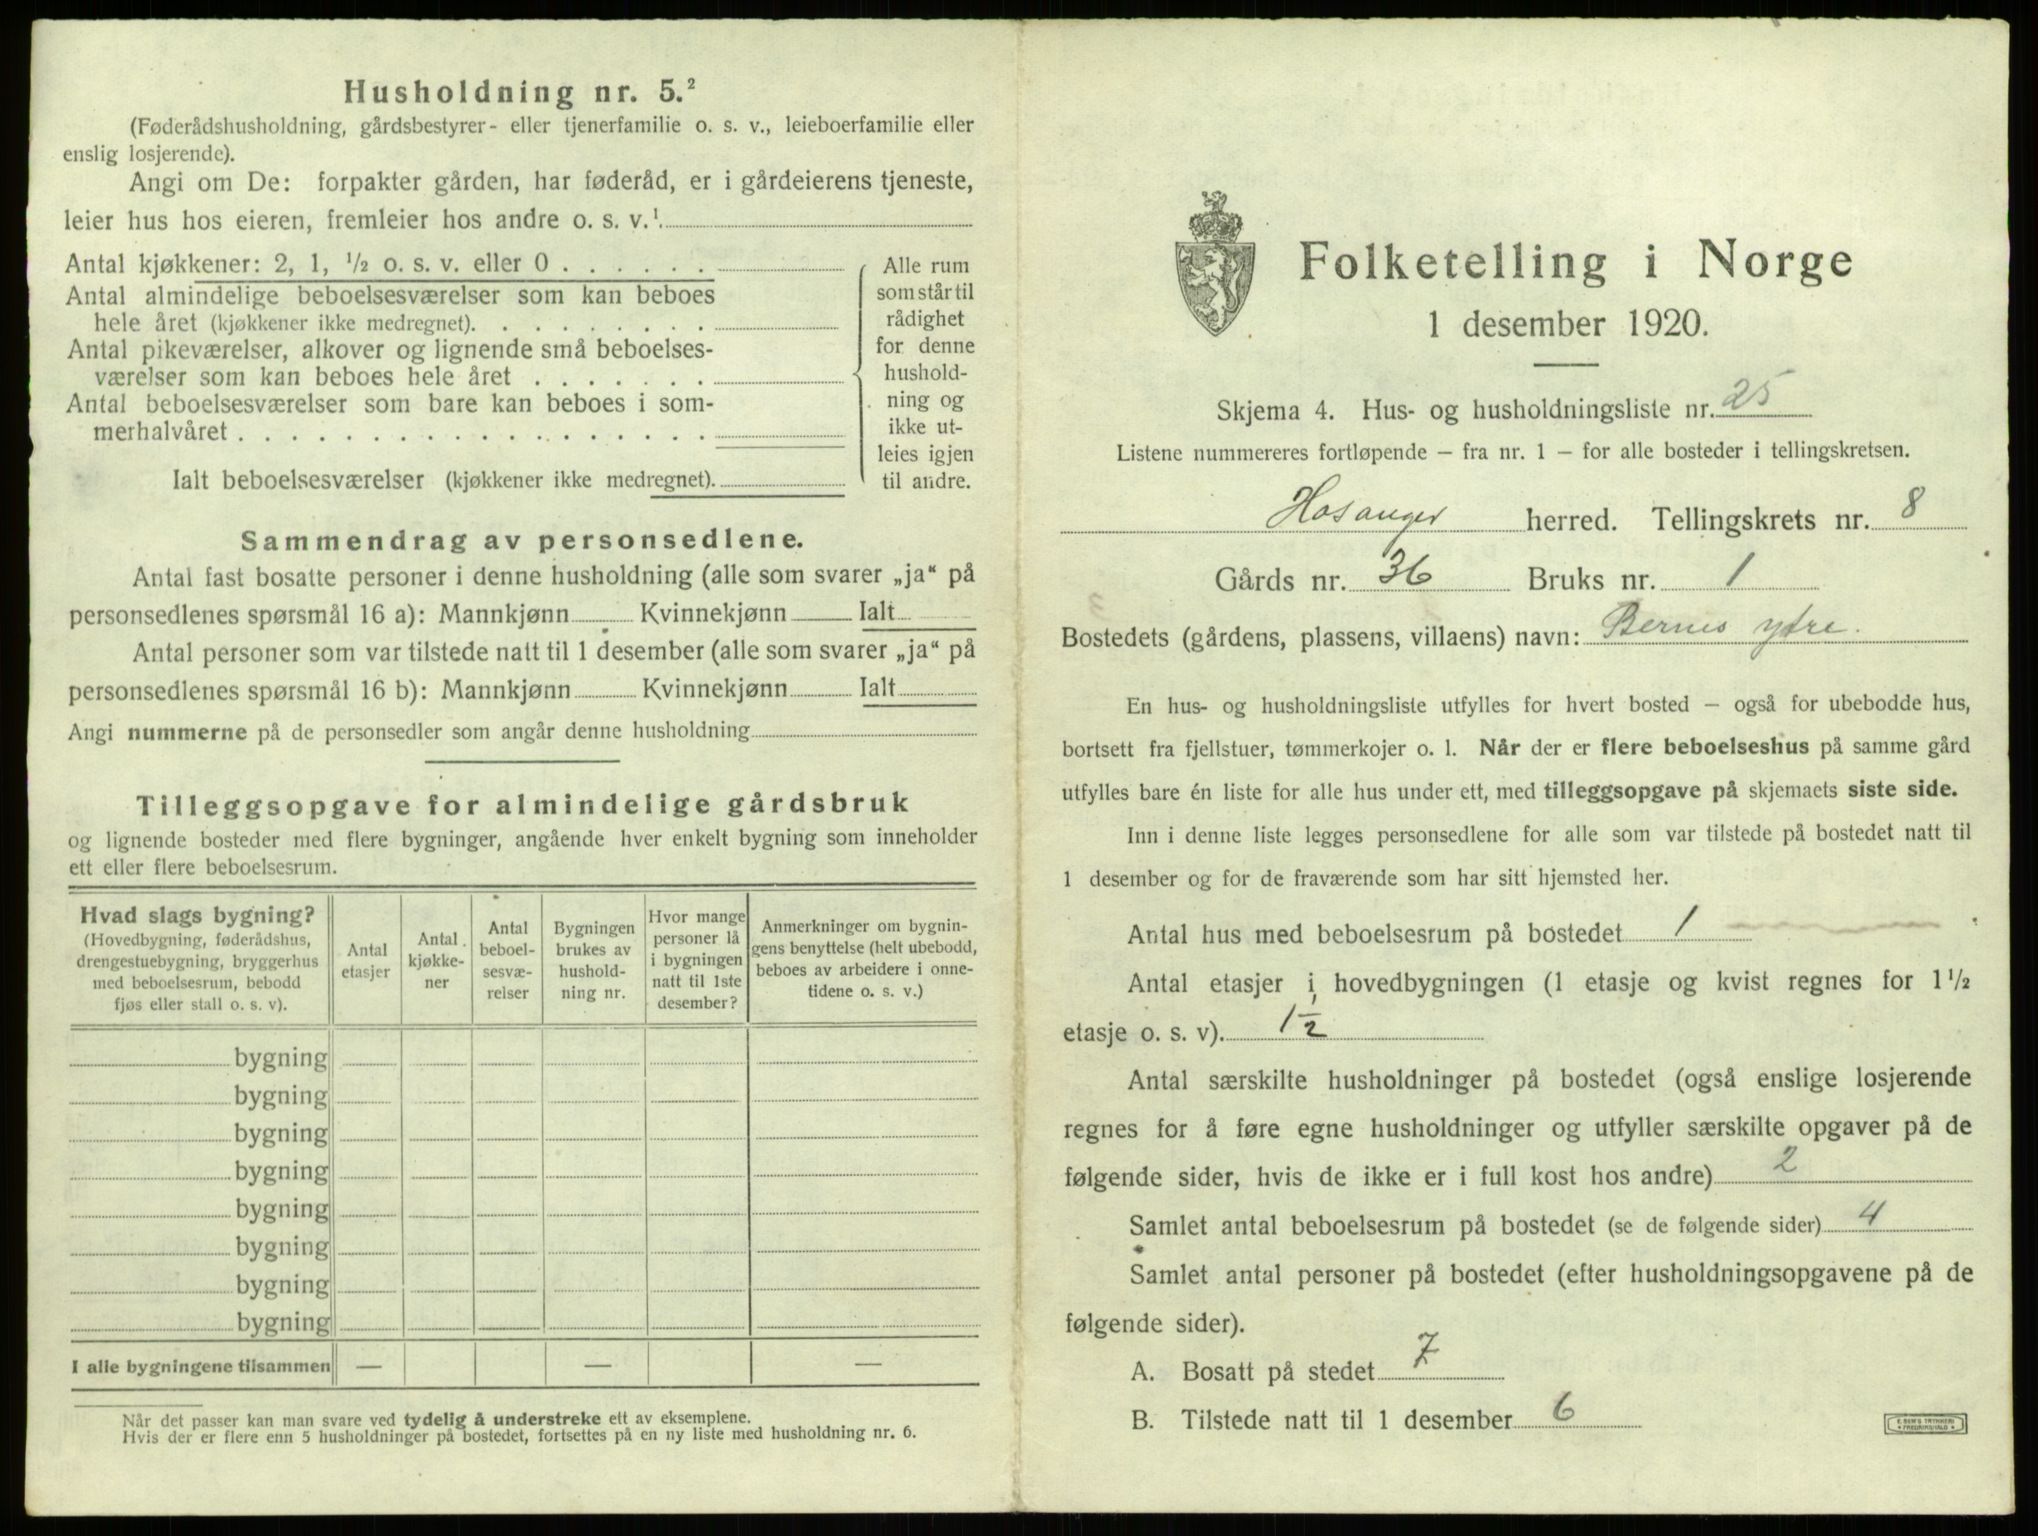 Husholdning nr. 5.²
(Føderådshusholdning, gårdsbestyrer- eller tjenerfamilie o. s. v., leieboerfamilie eller
enslig losjerende).
Angi om De: forpakter gården, har føderåd, er i gårdeierens tjeneste,
leier hus hos eieren, fremleier hos andre o. s. v.¹
Antal kjøkkener: 2, 1, ½ o. s. v. eller 0 . . . . . .
Antal almindelige beboelsesværelser som kan beboes
hele året (kjøkkener ikke medregnet). . . . . . . . .
Antal pikeværelser, alkover og lignende små beboelses-
værelser som kan beboes hele året . . . . . . .
Antal beboelsesværelser som bare kan beboes i som-
merhalvåret . . . . . . . . . . . . . . . . . .
Ialt beboelsesværelser (kjøkkener ikke medregnet).
Alle rum
som står til
rådighet
for denne
hushold-
ning og
ikke ut-
leies igjen
til andre.
Sammendrag av personsedlene.
Antal fast bosatte personer i denne husholdning (alle som svarer „ja“ på
personsedlenes spørsmål 16 a): Mannkjønn Kvinnekjønn Ialt
Antal personer som var tilstede natt til 1 desember (alle som svarer „ja“ på
personsedlenes spørsmål 16 b): Mannkjønn Kvinnekjønn Ialt
Angi nummerne på de personsedler som angår denne husholdning
Tilleggsopgave for almindelige gårdsbruk
og lignende bosteder med flere bygninger, angående hver enkelt bygning som inneholder
ett eller flere beboelsesrum.
Hvad slags bygning?
(Hovedbygning, føderådshus,
drengestuebygning, bryggerhus
med beboelsesrum, bebodd
fjøs eller stall o. s. v).
Antal
etasjer
Antal
kjøkke-
ner
Antal
beboel-
sesvæ-
relser
Bygningen
brukes av
hushold-
ning nr.
Hvor mange
personer lå
i bygningen
natt til 1ste
desember?
Anmerkninger om bygnin-
gens benyttelse (helt ubebodd,
beboes av arbeidere i onne-
tidene o. s. v.)
bygning
bygning
bygning
bygning
bygning
bygning
bygning
bygning
I alle bygningene tilsammen — — —
Når det passer kan man svare ved tydelig å understreke ett av eksemplene.
Hvis der er flere enn 5 husholdninger på bostedet, fortsettes på en ny liste med husholdning nr. 6.
Folketelling i Norge
1 desember 1920.
Skjema 4. Hus- og husholdningsliste nr. 25
Listene nummereres fortløpende — fra nr. 1 — for alle bosteder i tellingskretsen.
Hosanger herred. Tellingskrets nr. 8
Gårds nr. 36 Bruks nr. 1
Bostedets (gårdens, plassens, villaens) navn: Bernes ytre.
En hus- og husholdningsliste utfylles for hvert bosted — også for ubebodde hus,
bortsett fra fjellstuer, tømmerkojer o. l. Når der er flere beboelseshus på samme gård
utfylles bare én liste for alle hus under ett, med tilleggsopgave på skjemaets siste side.
Inn i denne liste legges personsedlene for alle som var tilstede på bostedet natt til
1 desember og for de fraværende som har sitt hjemsted her.
Antal hus med beboelsesrum på bostedet 1
Antal etasjer i hovedbygningen (1 etasje og kvist regnes for 1½
etasje o. s. v). 1½
Antal særskilte husholdninger på bostedet (også enslige losjerende
regnes for å føre egne husholdninger og utfyller særskilte opgaver på de
følgende sider, hvis de ikke er i full kost hos andre) 2
Samlet antal beboelsesrum på bostedet (se de følgende sider) 4
Samlet antal personer på bostedet (efter husholdningsopgavene på de
følgende sider).
A. Bosatt på stedet 7
B. Tilstede natt til 1 desember 6
E. SEMS TRYKKERI
FREDRIKSHALD